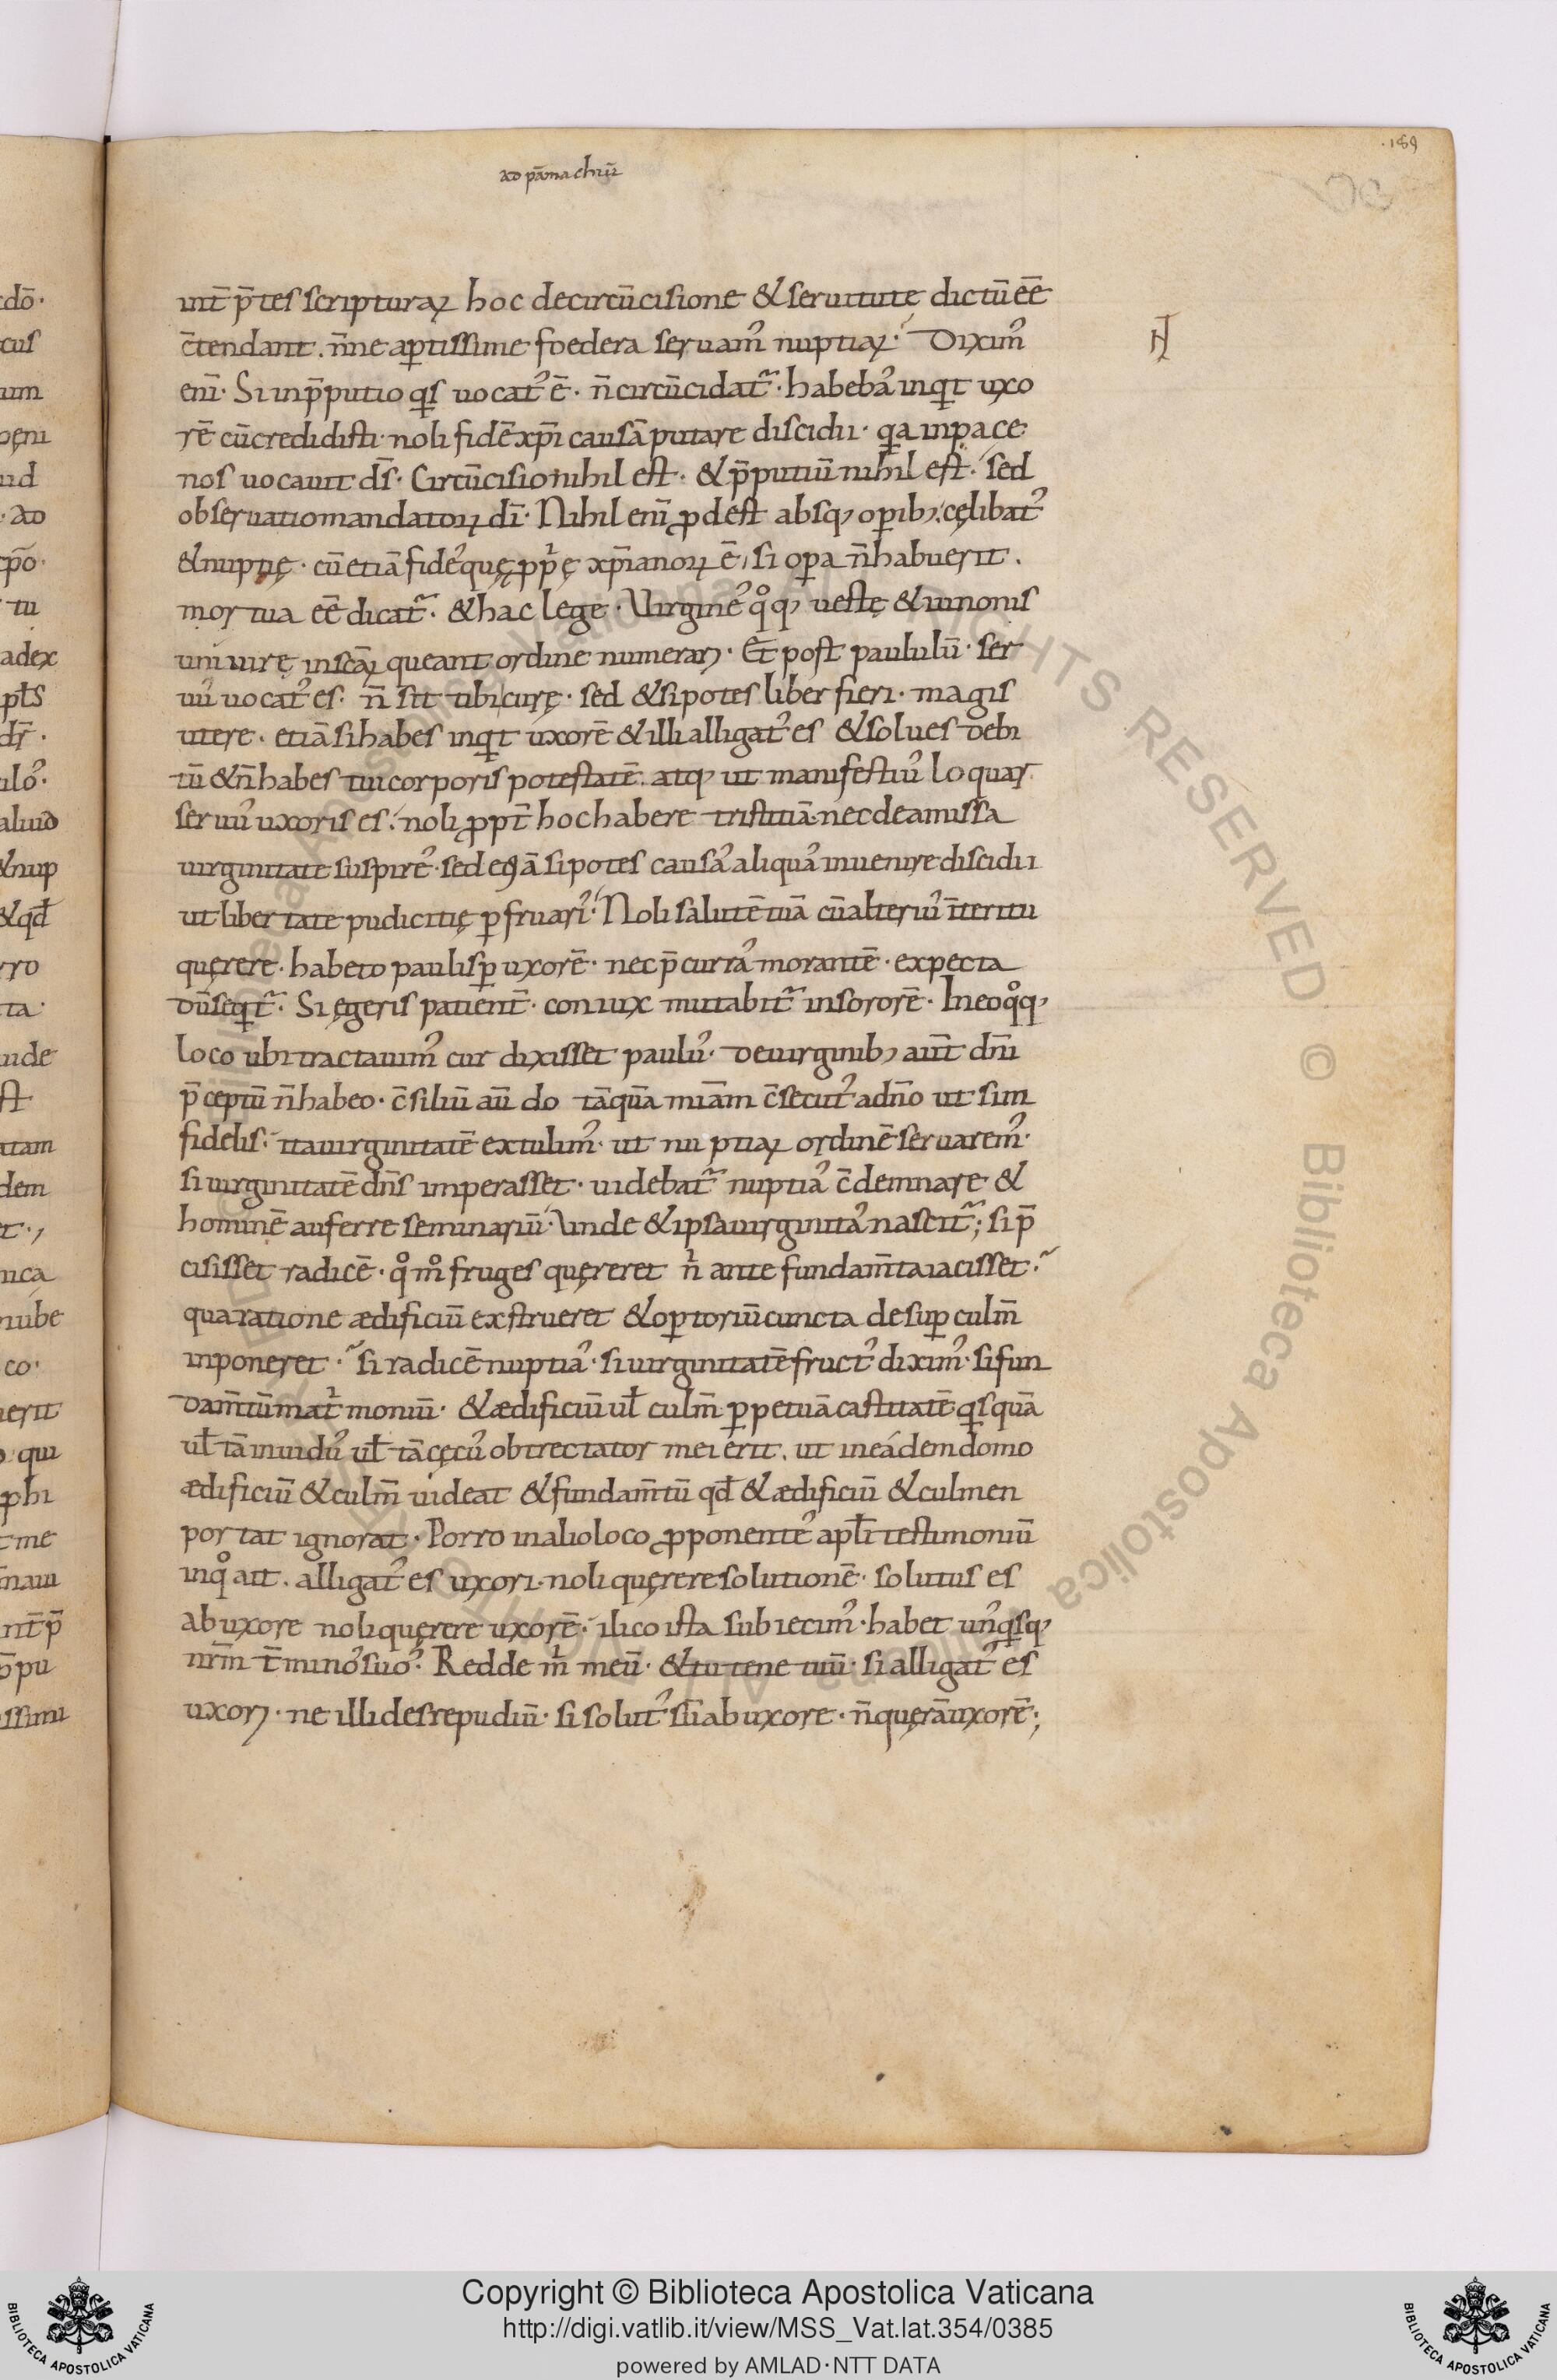 189
ad pāmachiū
int̄ p̄tes scripturaꝝ hoc decircūcisione & seruitute dictū eē
c̄tendant. n̄ne aptissime foedera seruamꝰ nuptiaꝝ. Diximꝰ
enī. Si inp̄putio qͥs uocatꝰ ē. n̄ circūcidat. habebaꝰ inqͥt uxo
rē cūcredidisti. noli fidē xp̄i causā putare discidii. qͥa inpace
nos uocauit ds̄. Circūcisio nihil est. & p̄putiū nihil est. sed
obseruatio mandatoꝝ dī. Nihil enī ꝓdest absqꝫ opibꝫ celibatꝰ
& nuptię. cū etiā fideꝰ quę pp̄ę xp̄ianoꝝ ē, si opa n̄habuerit.
mortua eē dicat. & hac lege. Virgineꝰ qͦqꝫ uestę & iunonis
uniuirę inscāꝝ queant ordine numerari. Et post paululū. ser
uꝰ uocatꝰ es. n̄ sit tibi curę. sed & si potes liber fieri. magis
utere. etiā si habes inqͥt uxorē & illi alligatꝰ es & solues debi
tū & n̄habes tui corporis potestatē. atqꝫ ut manifestiuꝰ loquar
seruuꝰ uxoris es. noli ꝓpt̄ hoc habere tristitiā. nec deamissa
uirginitate suspireꝰ. sed etiā si potes causaꝰ aliquaꝰ inuenire discidii
ut libertate pudicitię ꝑfruariꝰ. Noli salutē tuā cū alteriuꝰ īteritu
quęrere. habeto paulisꝑ uxorē. nec p̄curraꝰ morantē. expecta
dū seqͥt. Si egeris patient̄. coniux mutabit insororē. In eo qͦqꝫ
loco ubi tractauimꝰ cur dixisset pauluꝰ. deuirginibꝫ aut̄ dn̄i
p̄ceptū n̄habeo. c̄siliū aū do tāquā miam̄ c̄secutꝰ adn̄o ut sim
fidelis. ita uirginitatē extulimꝰ. ut nuptiaꝝ ordinē seruaremꝰ.
si uirginitatē dn̄s imperasset. uidebat nuptiaꝰ c̄demnare &
hominē auferre seminariū. Unde & ipsa uirginitaꝰ nascit; si p̄
cisisset radicē. qͦmͦ fruges quęreret nͥ ante fundam̄ta iacisset.
qua ratione ædificiū exstrueret & optoriū cuncta desuꝑ culm̄
inponeret. si radicē nuptiaꝰ. si uirginitatē fructꝰ diximꝰ. si fun
dam̄tū matͥmoniū. & ædificiū ul̄ culm̄ ꝑpetuā castitatē qͥsquā
ul̄ tā inuiduꝰ ul̄ tā cęcuꝰ obtrectator mei erit. ut ineádem domo
ædificiū & culm̄ uideat & fundam̄tū qd̄ & ædificiū & culmen
portat ignorat. Porro inalio loco ꝓponenteꝰ apl̄i testimoniū
inqͦ ait. alligatꝰ es uxori. noli quęrere solutionē. solutus es
ab uxore noli quęrere uxorē. ilico ista subiecimꝰ. habet unꝰqͥsqꝫ
nr̄m t̄minoꝰ suoꝰ. Redde mͥ meū. & tu tene tuū. si alligatꝰ es
uxori. ne illi des repudiū. si solutꝰ sū ab uxore. n̄ quęrā uxorē;
Copyright © Biblioteca Apostolica Vaticana
http://digi.vatlib.it/view/MSS_Vat.lat.354/0385
powered by AMLAD·NTT DATA